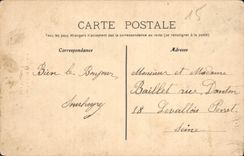 15
CARTE POSTALE
Tous les pays étrangers n'acceptent pas la correspondance au recto (se renseigner à la poste)
Correspondance
Adresse
Bien le Bonjour
Monsieur et Madame
Baillet rue Danton
18 Levallois Perret
Seine